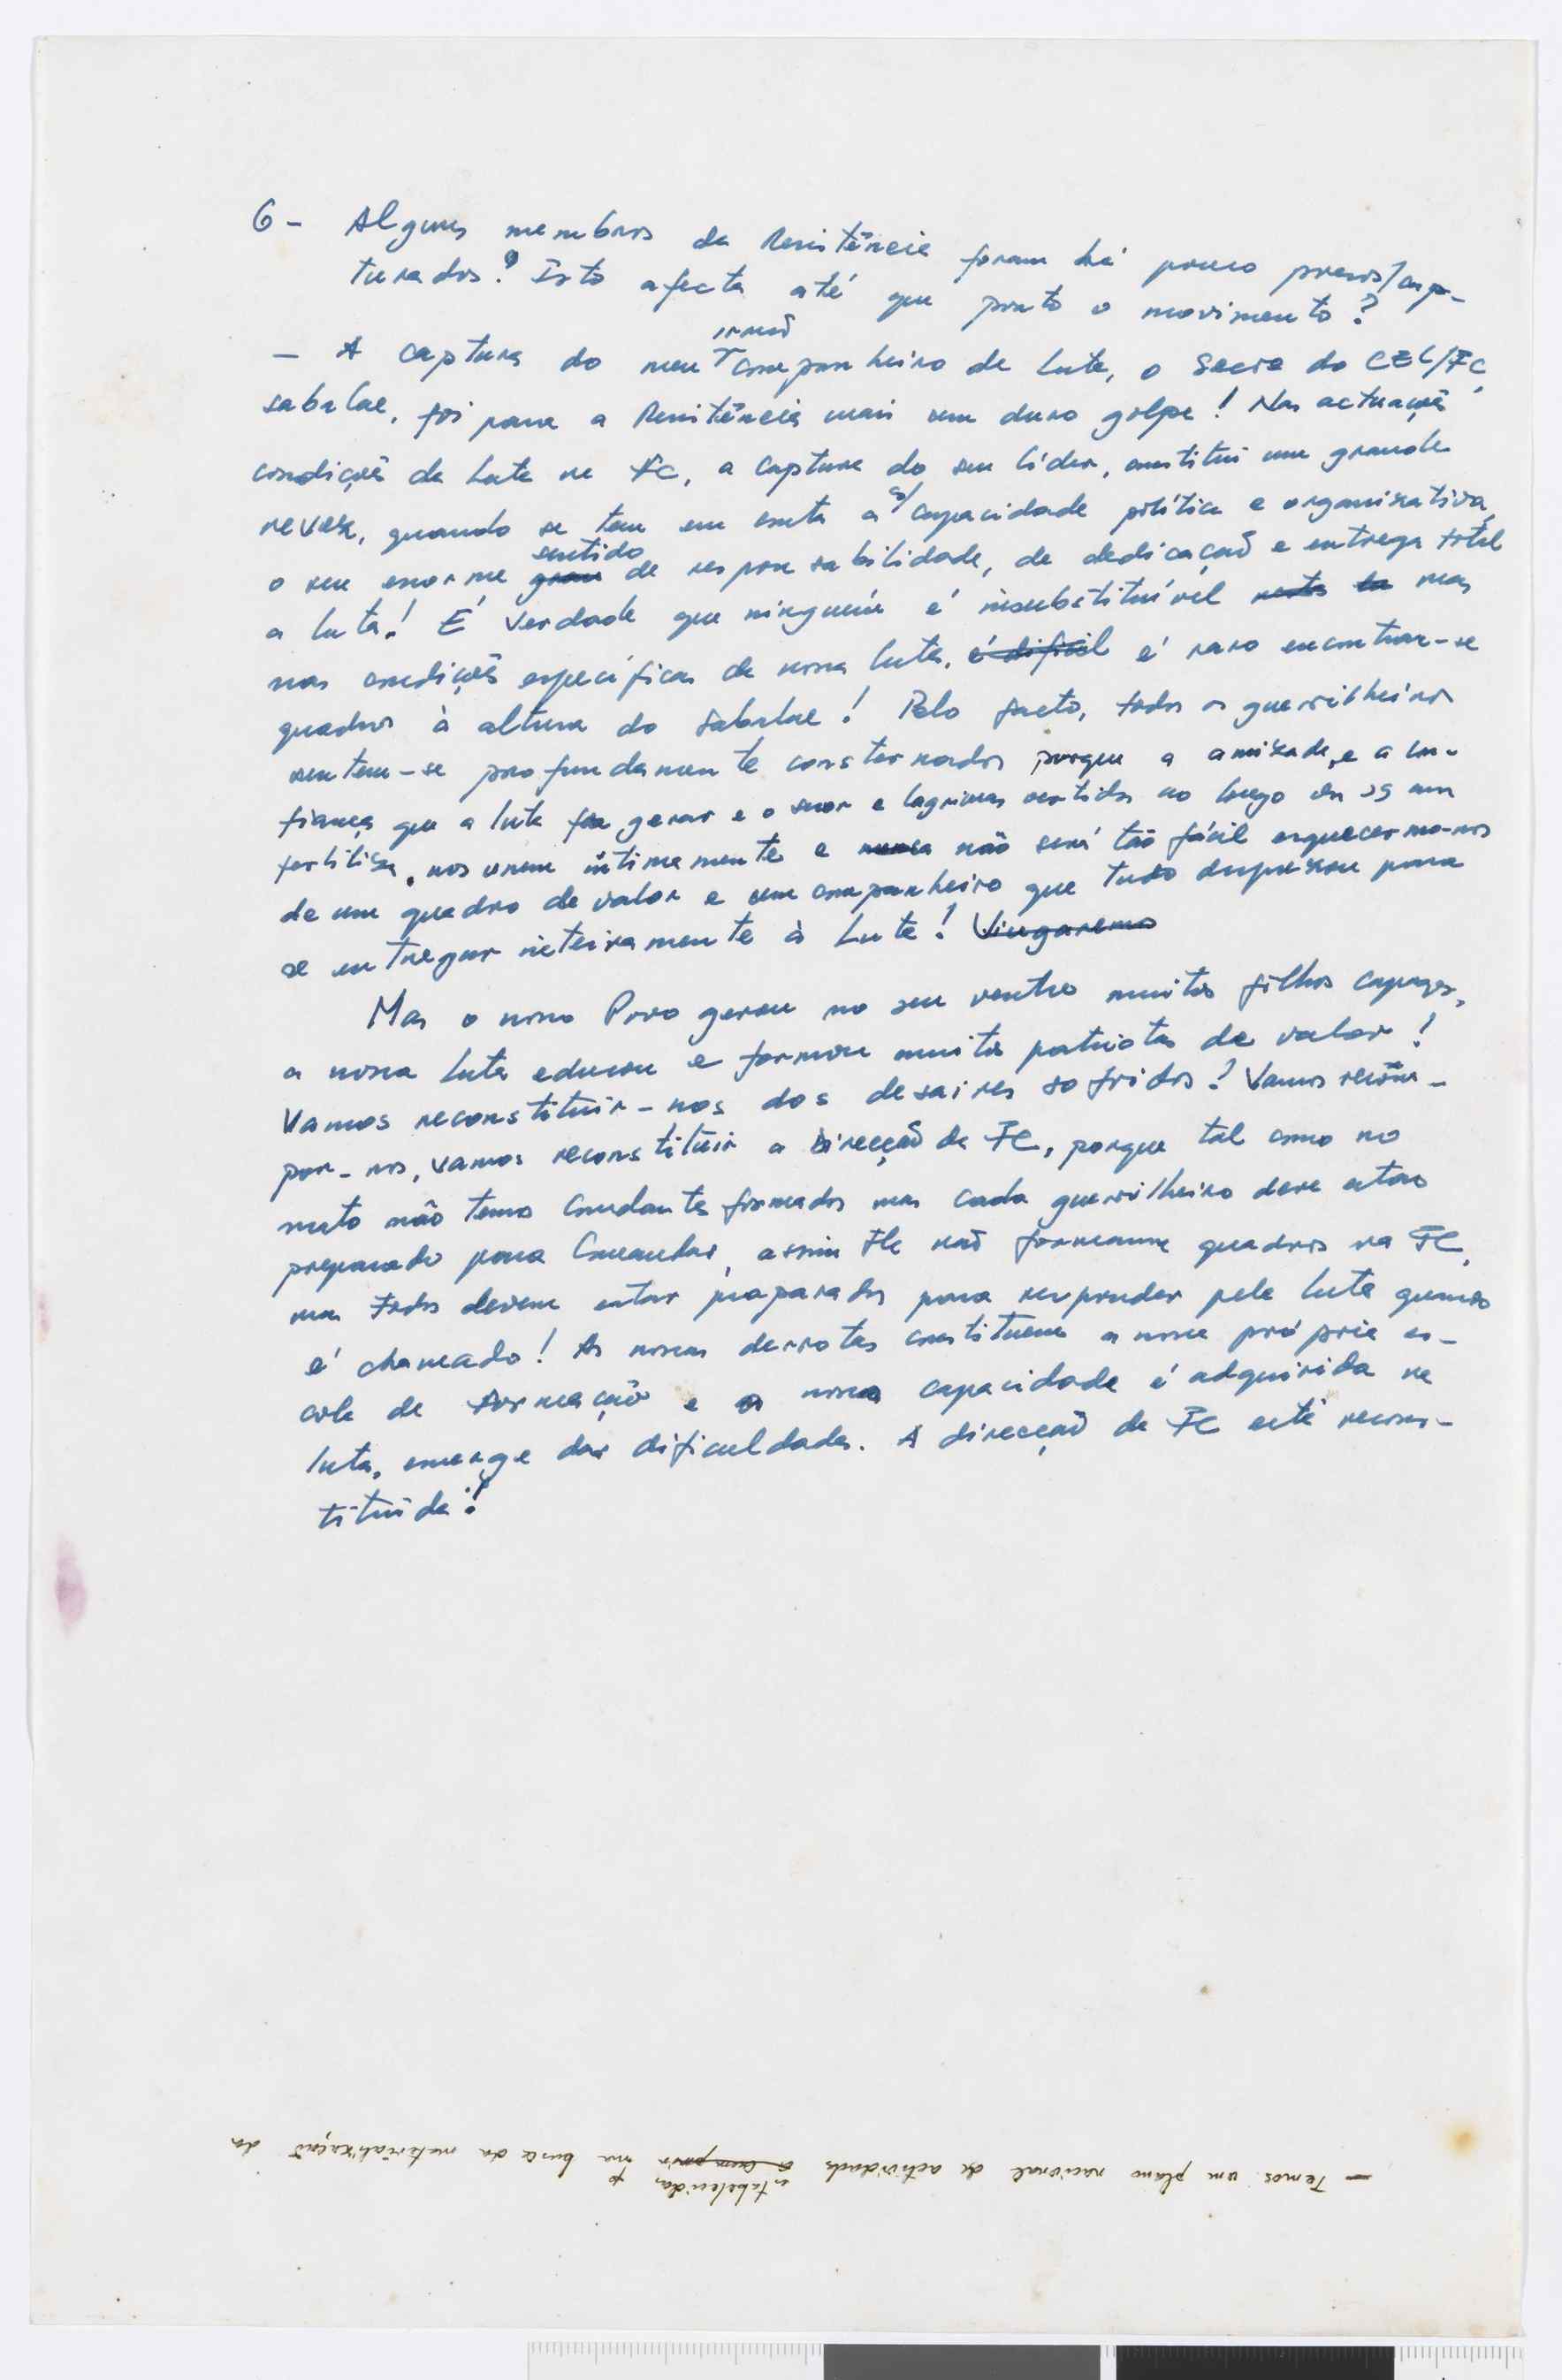 6 - Alguns membros da Resistência foram há pouco presos/cap-
turados? Isto afecta até que ponto o movimento?
irmão
- A captura do meu companheiro de Luta, o Secre do CEL/FC,
Sabalae, foi para a Resistência mais um duro golpe! Nas actuações
condições da Luta na FC, a captura do seu líder, constitui um grande
revez, quando se tem em conta a s/ capacidade política e organizativa,
sentido
o seu enorme grau de responsabilidade, de dedicação e entrega total
a luta! É verdade que ninguém é insubstituível nesta la mas
nas condições específicas da nossa luta, é difícil é raro encontrar-se
quadros à altura do Sabalae! Pelo facto, todos os guerrilheiros
sentem-se profundamente consternados porque a amizade, e a con-
fiança que a luta faz gerar e o suor e lagrimas vertidos ao longo
fertiliza, nos unem intimamente e nunca não será tão fácil esquecermo-nos
de um quadro de valor e um companheiro que tudo desprezou para
se entregar inteiramente à Luta! Vingaremo
Mas o nosso Povo gerou no seu ventre muitos filhos capazes,
a nossa luta educou e formou muitos patriotas de valor!
Vamos reconstituir-nos dos desaires sofridos! Vamos recom-
por-nos, vamos reconstituir a Direcção da FC, porque tal como no
mato não temos Comdantes formados mas cada guerrilheiro deve estar
preparado para Comandar, assim tb não formamos quadros na FC,
mas todos devem estar preparados para responder pela luta quando
é chamado! As nossas derrotas constituem a nossa própria es-
cola de formação e a nossa capacidade é adquirida na
luta, emerge das dificuldades. A direcção da FC está recons-
tituída!
- Temos um plano nacional de actividades a cumprir na busca da materialização da
estabelecidas p